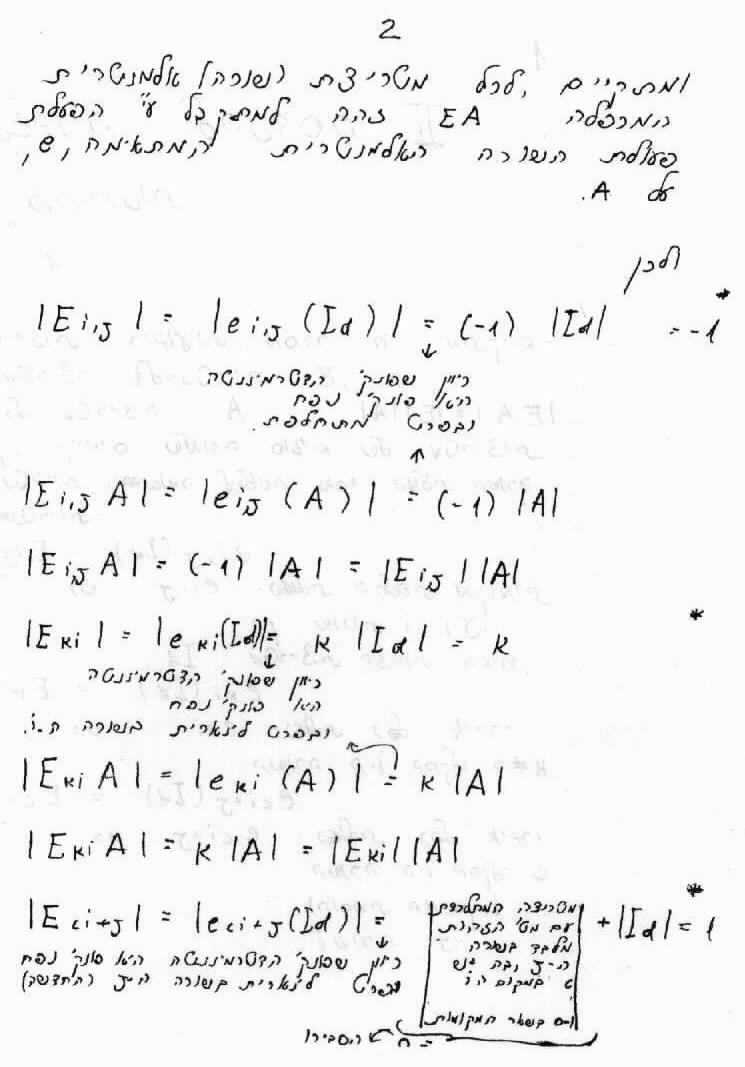 2
ומתקיים, לכל מטריצת (שורה) אלמנטרית
המכפלה EA זהה למתקבל ע"י הפעלת
פעולת השורה האלמנטרית המתאימה, e,
על A.
ולכן
|Ei,j| = |ei,j (Id)| = (-1) |Id| = -1 *
כיוון שפונק' הדטרמיננטה
היא פונק' נפח
ובפרט מתחלפת.
|Ei,j A| = |ei,j (A)| = (-1) |A|
|Ei,j A| = (-1) |A| = |Ei,j| |A|
|Eki| = |eki(Id)| = k |Id| = k *
כיוון שפונק' הדטרמיננטה
היא פונק' נפח
ובפרט לינארית בשורה ה-i.
|Eki A| = |eki (A)| = k |A|
|Eki A| = k |A| = |Eki| |A|
|Eci+j| = |eci+j (Id)| = | מטריצה המתלכדת
עם מט' הזהות
מלבד בשורה
ה-j ובה יש
c במקום ה-i
ו-0 בשאר המקומות | + |Id| = 1 *
כיוון שפונק' הדטרמיננטה היא פונק' נפח
ובפרט לינארית בשורה ה-j (החדשה)
= 0 ← הסבירו